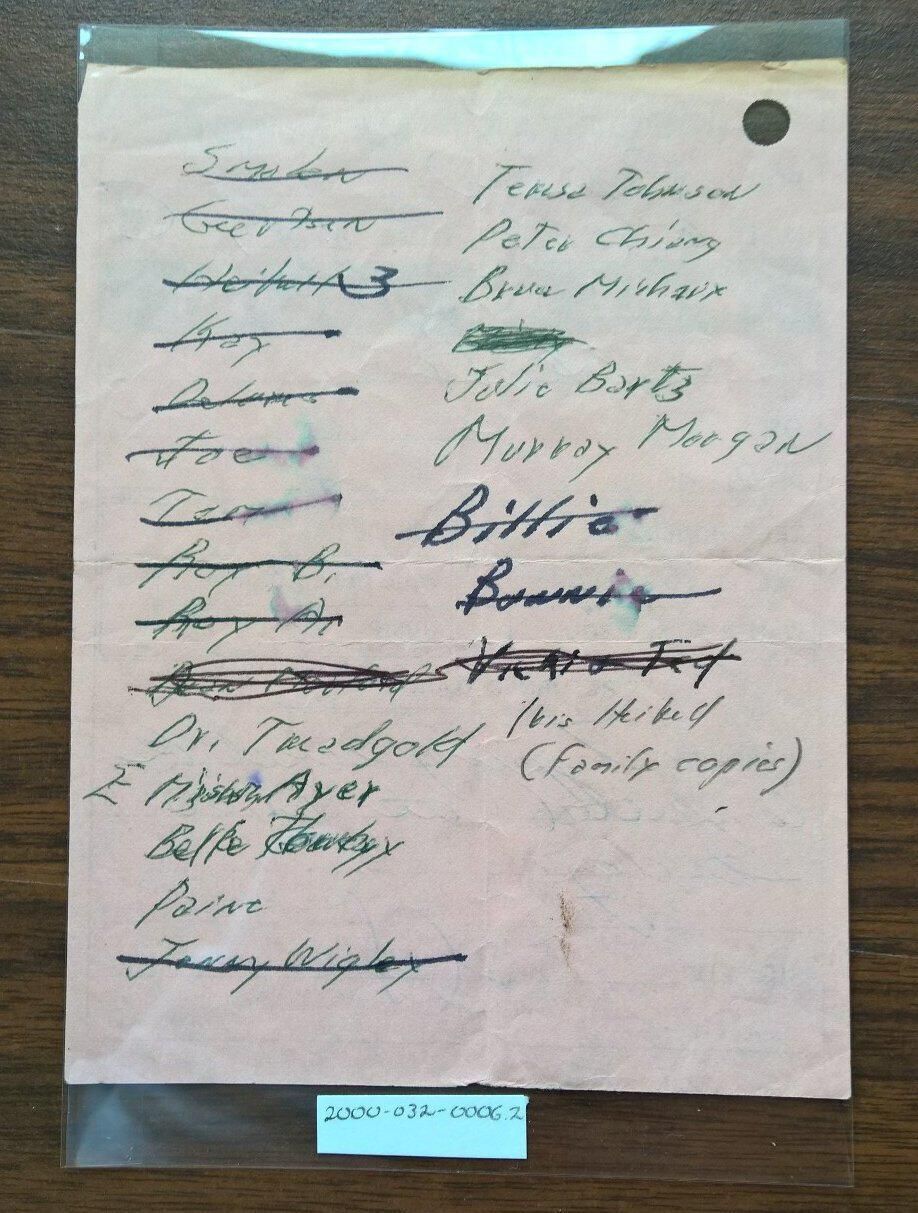 Smolen
Geertsen
3
Kay
Delume
Joe
Tam
Ray B.
Roy A.
Dr. Treadgold
E Ayer
Belle
Paine
Jenny Wigley
Teresa Johnson
Peter Chiang
Bruce Michaux
Julie Bartz
Murray Morgan
Billie
Bonnie
Vicki & Ted
Iris Heikell
(Family copies)
2000-032-0006.2